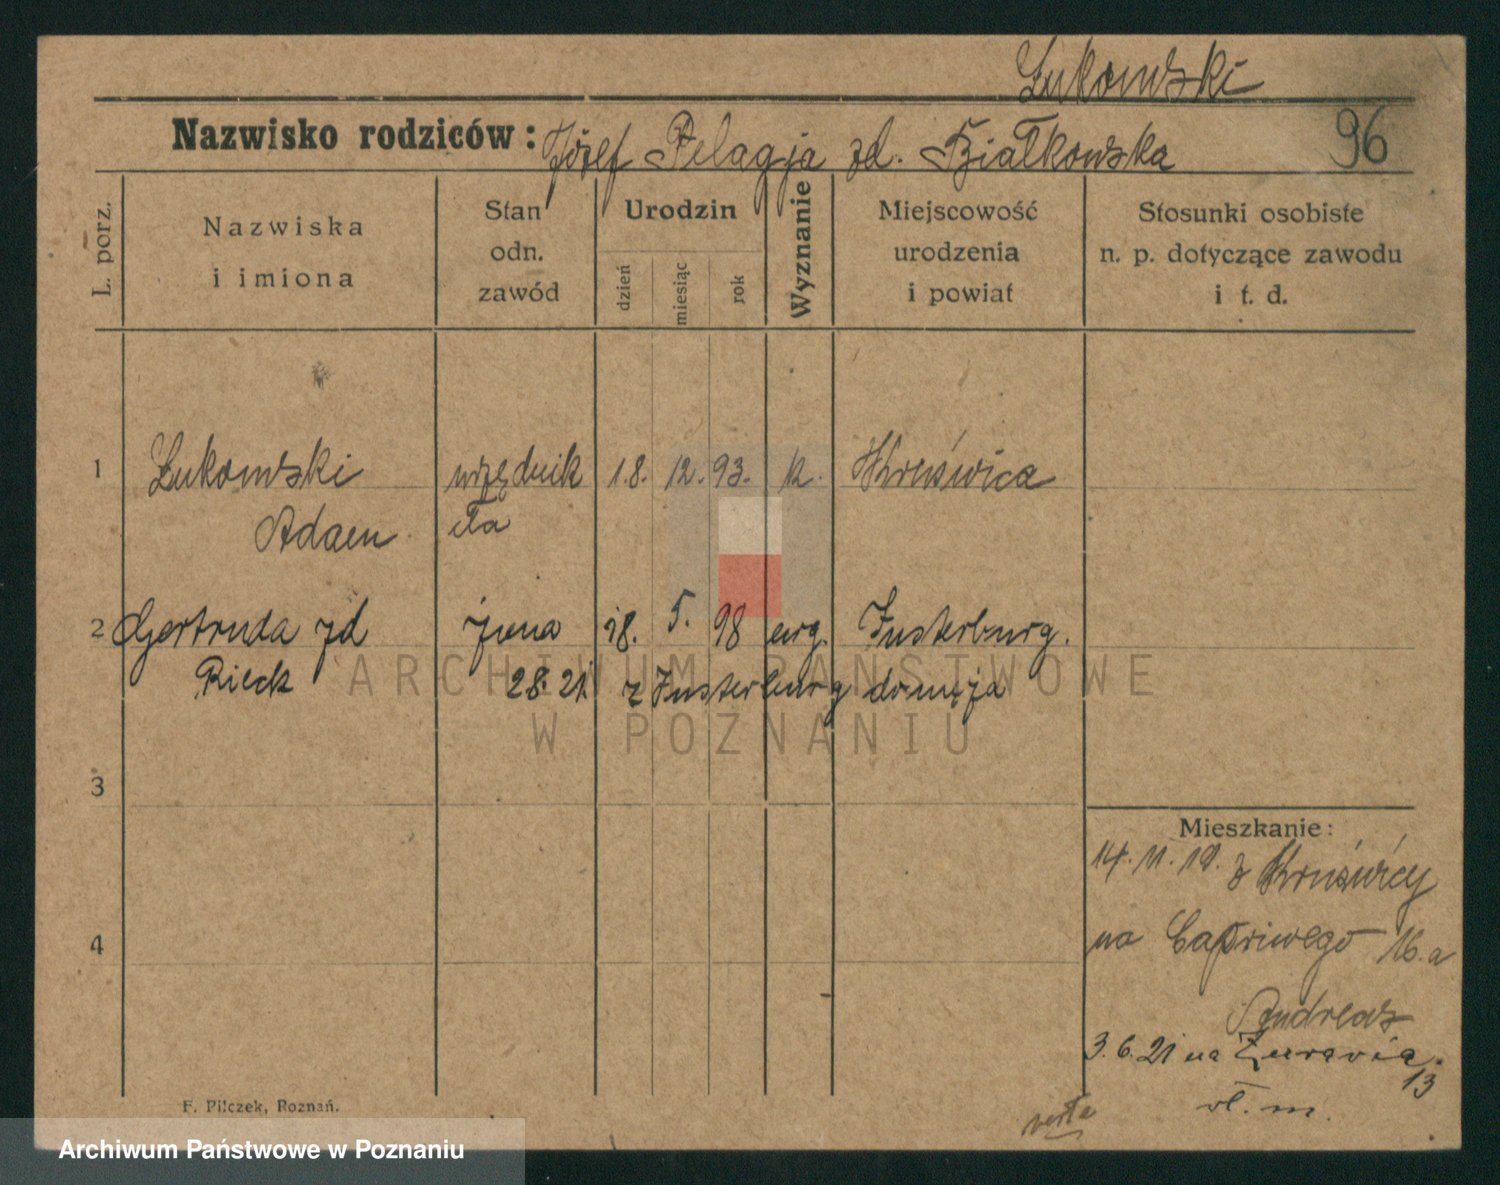 Łukowski
Nazwisko rodziców: Józef Pelagja zd. Białkowska 96
L. porz.
Nazwiska
i imiona
Stan
odn.
zawód
Urodzin
dzień
miesiąc
rok
Wyznanie
Miejscowość
urodzenia
i powiat
Stosunki osobiste
n. p. dotyczące zawodu
i t. d.
1 Łukowski urzędnik 18. 12. 93. k. Kruświca
Adam
2 Gertruda zd żona 18. 5. 98 ewg. Insterburg.
Rieck 28. 21. z Insterburg
3
4
Mieszkanie:
14. 11. 19. z Kruświcy
na Capriwego 16. a
Andreas
3. 6. 21 na Żurawia
13
wł. m.
verte
F. Pilczek, Poznań.
ARCHIWUM PAŃSTWOWE
W POZNANIU
Archiwum Państwowe w Poznaniu